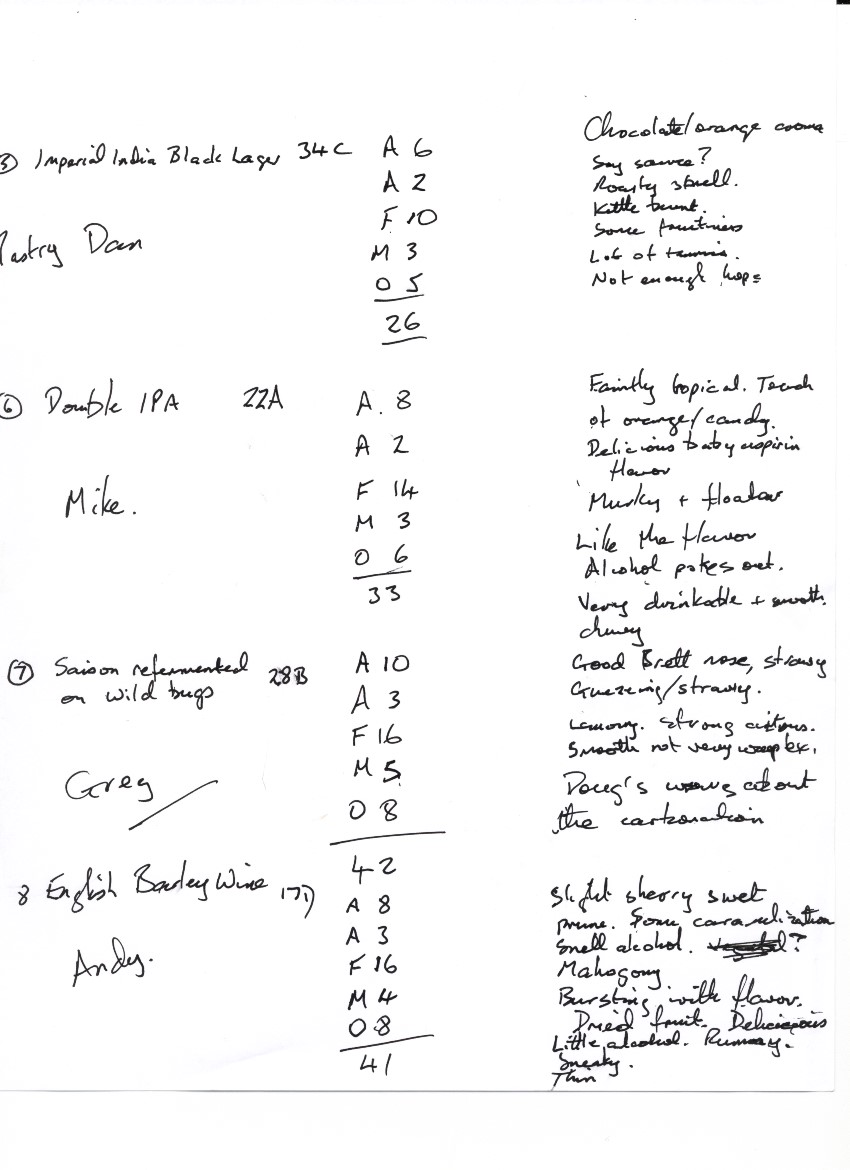 5 Imperial India Black Lager 34C A 6 Chocolate/orange aroma
A 2 Soy sauce?
Roasty smell.
Pastry Dan F 10 Kettle burnt.
Some fruitiness
M 3 Lot of tannis.
O 5 Not enough hops
26
6 Double IPA 22A A. 8 Faintly tropical. Touch
of orange/candy.
A 2 Delicious baby aspirin
flavor
Mike. F 14 Murky + floater
M 3 Like the flavor
O 6 Alcohol pokes out.
33 Very drinkable + smooth.
chewy
7 Saison refermented 28B A 10 Good Brett nose, strawy
on wild bugs A 3 Guezeing/strawy.
F 16 Lemony. strong citrus.
Smooth not very complex.
Greg M 5 Doug's wrong about
O 8 the carbonation
42
8 English Barley Wine 17D A 8 Slight sherry sweet
prune. Some caramelization
A 3 Smell alcohol. ?
Andy. F 16 Mahogony
M 4 Bursting with flavor.
O 8 Dried fruit. Delicious
Little alcohol. Rummy.
41 Sneaky.
Thin